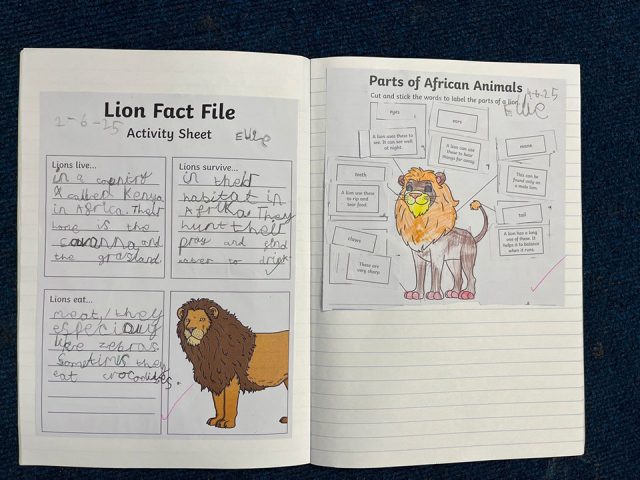 Lion Fact File
Activity Sheet
2-6-25
Ellie
Lions live...
in a country
called Kenya
in Africa. Their
home is the
savanna and
the grasland
Lions survive...
in their
habitat in
Afrika. They
hunt their
pray and find
water to drink
Lions eat...
meat/they
especially
like zebras
Sometimes they
eat crocodiles.
Parts of African Animals
Cut and stick the words to label the parts of a lion
6.25
Ellie
eyes
A lion uses these to
see. It can see well
at night.
ears
A lion can use
these to hear
things far away.
mane
This can be
found only on
a male lion.
teeth
A lion use these
to rip and
tear food.
tail
A lion has a long
one of these. It
helps it to balance
when it runs.
claws
These are
very sharp.